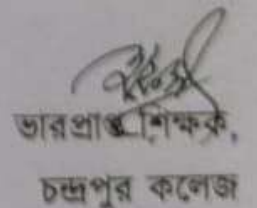 ভারপ্রাপ্ত শিক্ষক,
চন্দ্রপুর কলেজ